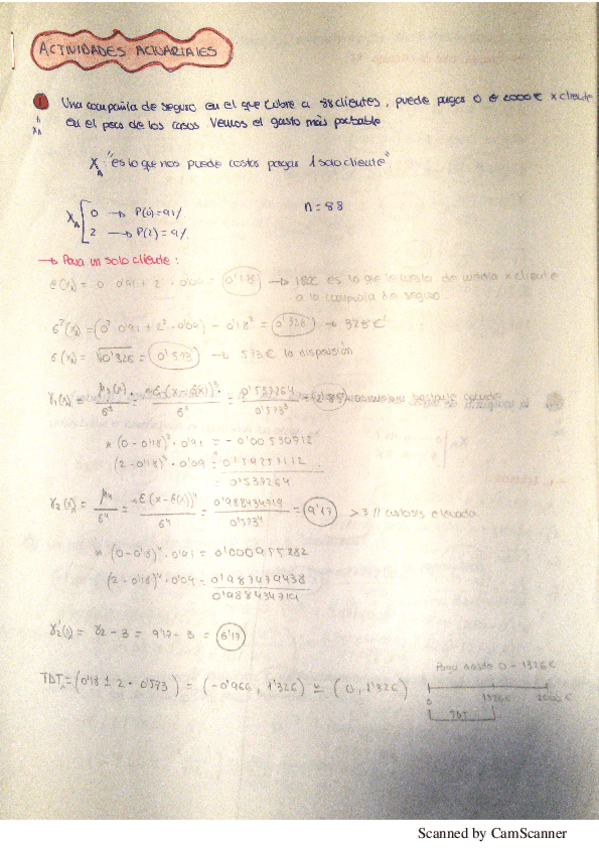 ACTIVIDADES ACTUARIALES
1 Una compañía de seguro en el que cubre a 88 clientes, puede pagar 0 ó 2000€ x cliente
en el peor de los casos. Vemos el gasto más probable
X_A "es lo que nos puede costar pagar 1 solo cliente"
X_A 0 → P(0)=91% n=88
2 → P(2)=9%
→ Para un solo cliente:
= 0·0'91 + 2·0'09 = 0'18 → 180€ es lo que le cuesta de media x cliente
a la compañía de seguro
σ²(x_A) = (0²·0'91 + 2²·0'09) - 0'18² = 0'328 → 328€²
σ(x_A) = √0'328 = 0'573 → 573€ la dispersión
γ₁(x_A) = μ₃(x)/σ³ = E(x-E(x))³/σ³ = 0'537264/0'573³ =
* (0-0'18)³·0'91 = -0'00530712
(2-0'18)³·0'09 =
= 0'537264
γ₂(x_A) = μ₄/σ⁴ = E(x-E(x))⁴/σ⁴ = 0'988434719/0'573⁴ = 9'17 > 3 // curtosis elevada
* (0-0'18)⁴·0'91 = 0'000955282
(2-0'18)⁴·0'09 = 0'987479438
0'988434719
γ₂'(x) = γ₂ - 3 = 9'17 - 3 = 6'17
Pago desde 0 - 1326€
TDT_A = (0'18 ± 2·0'573) = (-0'966, 1'326) ≃ (0, 1'326)
0 1326€ 2000€
TDT
Scanned by CamScanner